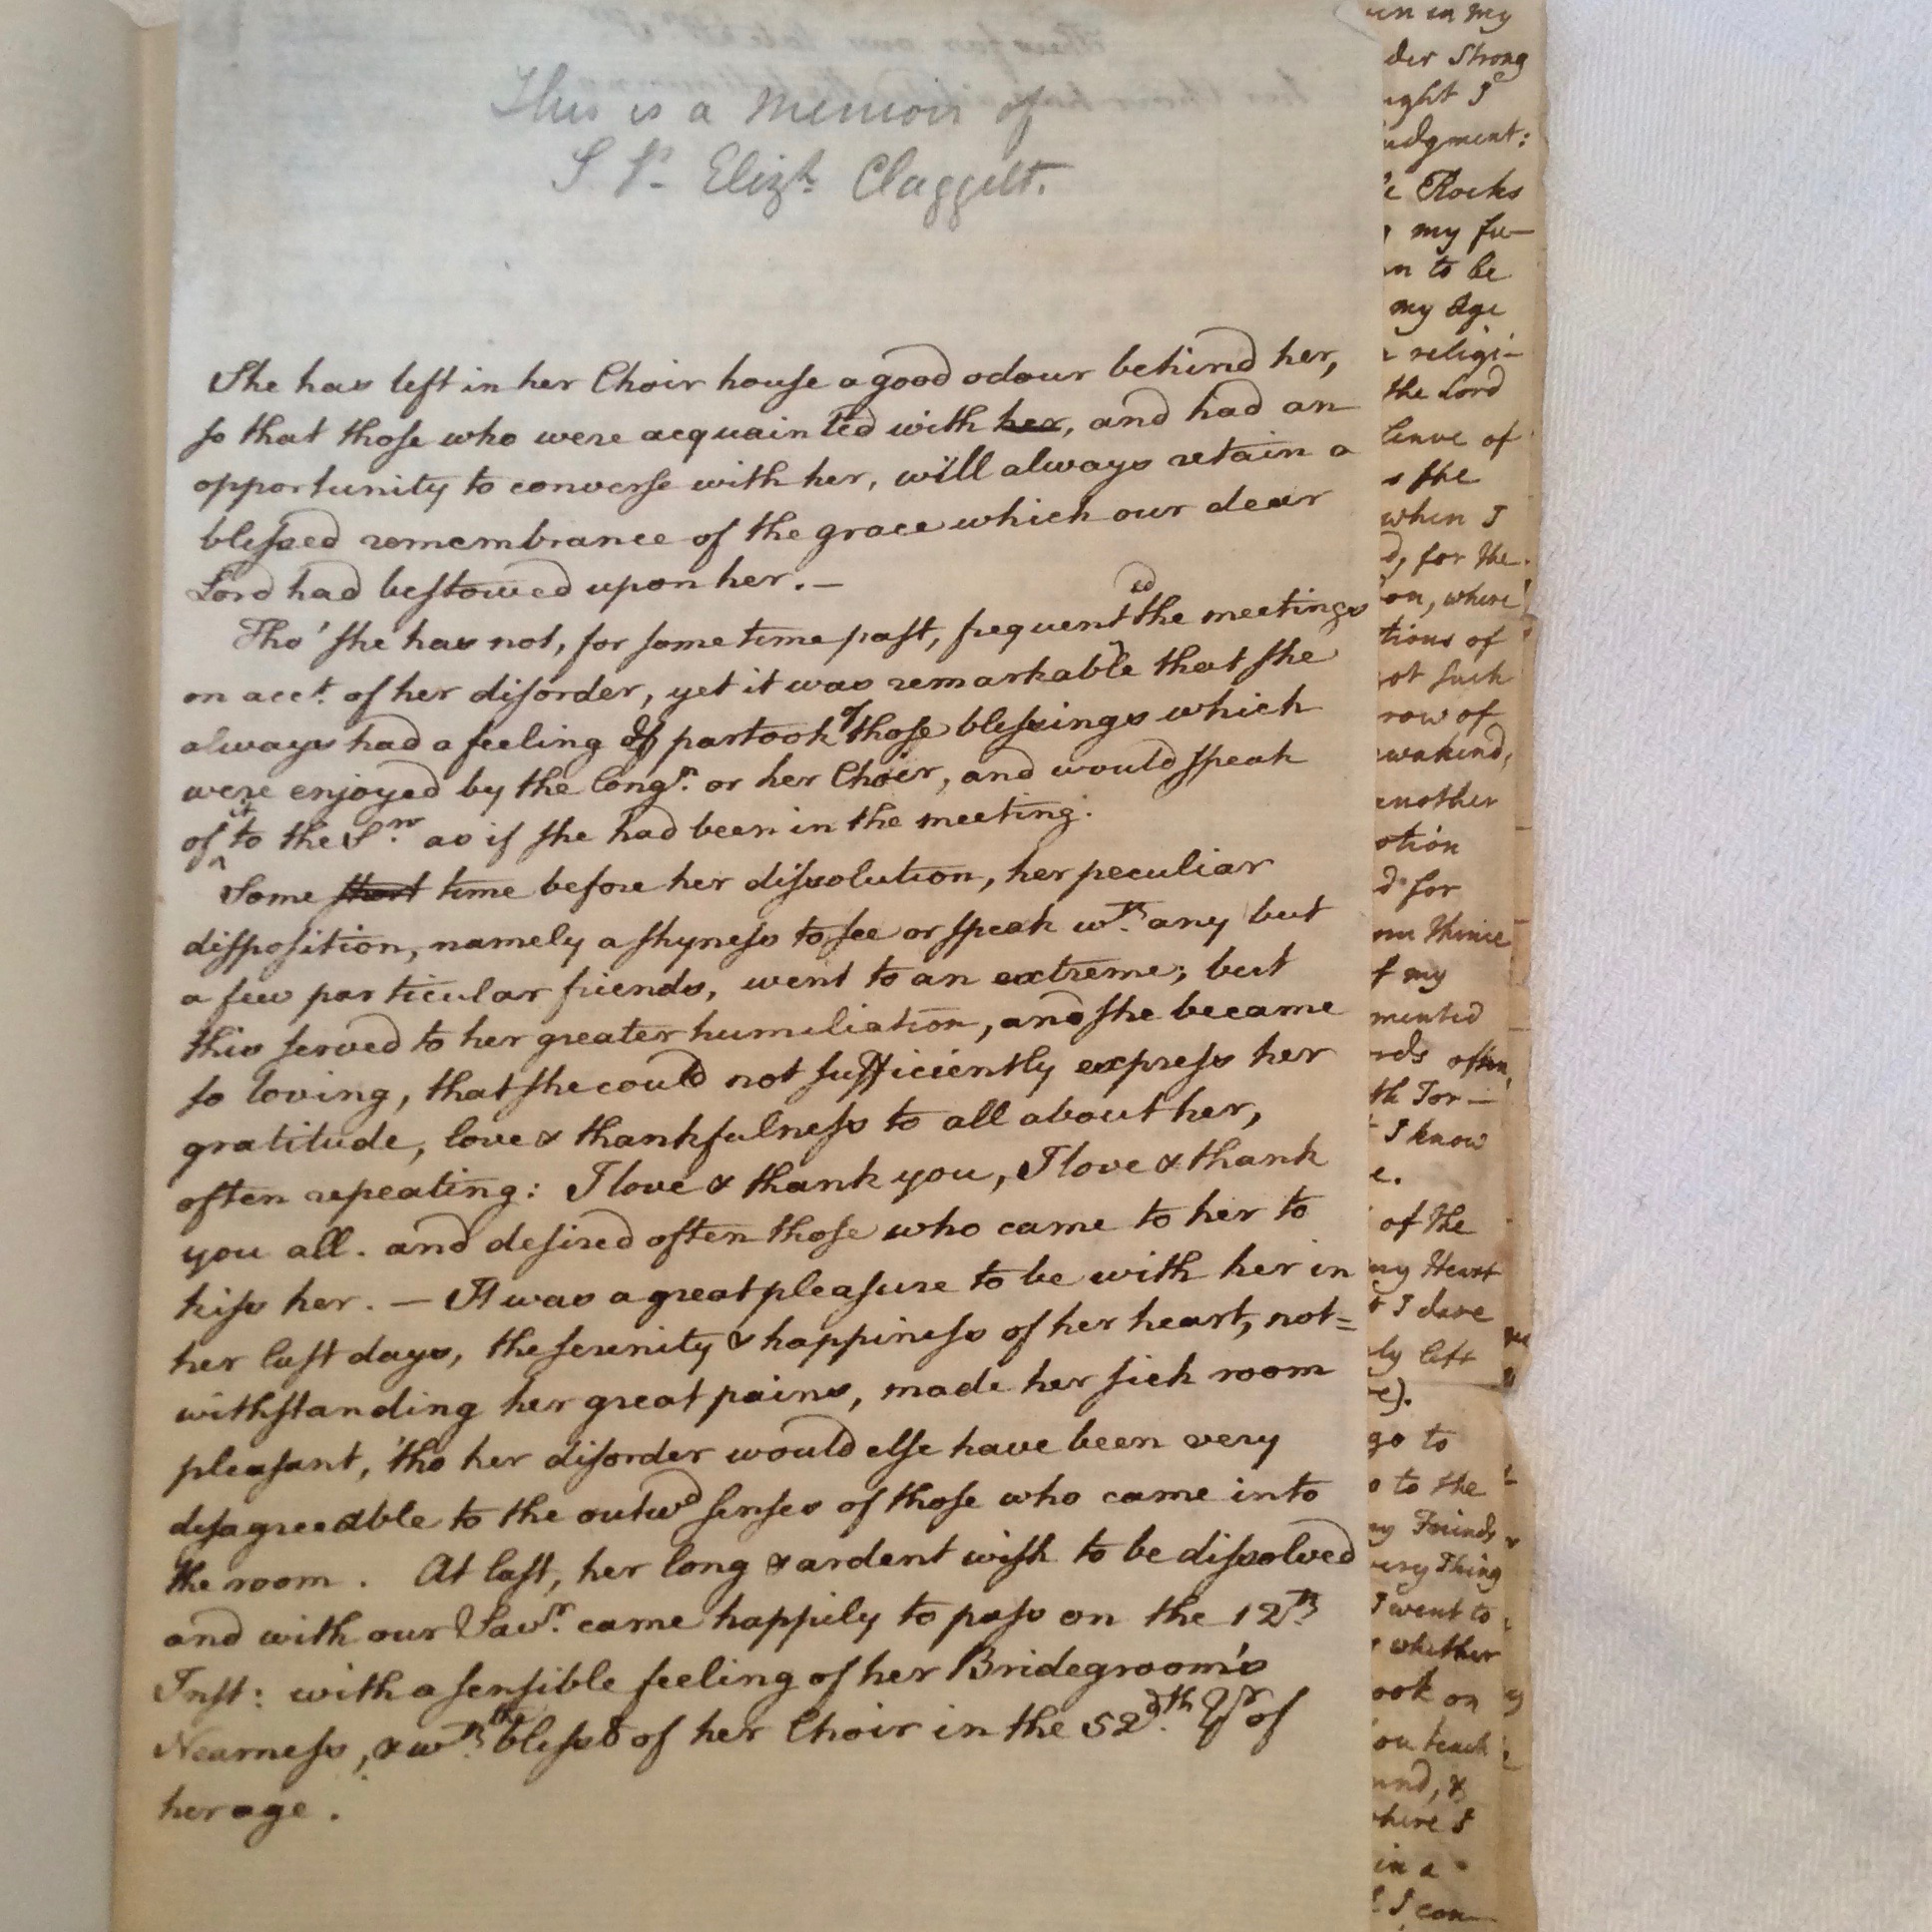 This is a Memoir of
S. Sr. Elizh. Claggett.
She has left in her Choir house a good odour behind her,
so that those who were acquainted with her, and had an
opportunity to converse with her, will always retain a
blessed remembrance of the grace which our dear
Lord had bestowed upon her. —
Tho' she has not, for some time past, frequented the meetings
on acct. of her disorder, yet it was remarkable that she
always had a feeling & partook of those blessings which
were enjoyed by the Congn. or her Choir, and would speak
of it to the Srs. as if she had been in the meeting.
Some short time before her dissolution, her peculiar
disposition, namely a shyness to see or speak wth. any but
a few particular friends, went to an extreme; but
this served to her greater humiliation, and she became
so loving, that she could not sufficiently express her
gratitude, love & thankfulness to all about her,
often repeating: I love & thank you, I love & thank
you all. and desired often those who came to her to
kiss her. — It was a great pleasure to be with her in
her last days, the serenity & happiness of her heart, not=
withstanding her great pains, made her sick room
pleasant, 'tho her disorder would else have been very
disagreeable to the outwd senses of those who came into
the room. At last, her long & ardent wish to be dissolved
and with our Savr. came happily to pass on the 12th.
Inst: with a sensible feeling of her Bridegroom's
Nearness, & wth. the bless8 of her Choir in the 52d.th Yr of
her age.
un in my
der Strong
ught I
udgment:
e Rocks
my fu—
n to be
my Age
religi-
the Lord
leave of
s the
when I
d, for the
on, where
tions of
ot such
row of
wakend,
another
otion
d for
f my
mented
rds often,
th Tor—
I know
e.
of the
my Heart
I dare
ly left
e).
go to
to the
my Friends
very Thing
I went to
whether
ook on
ou teach
und, &
where I
in a
I can